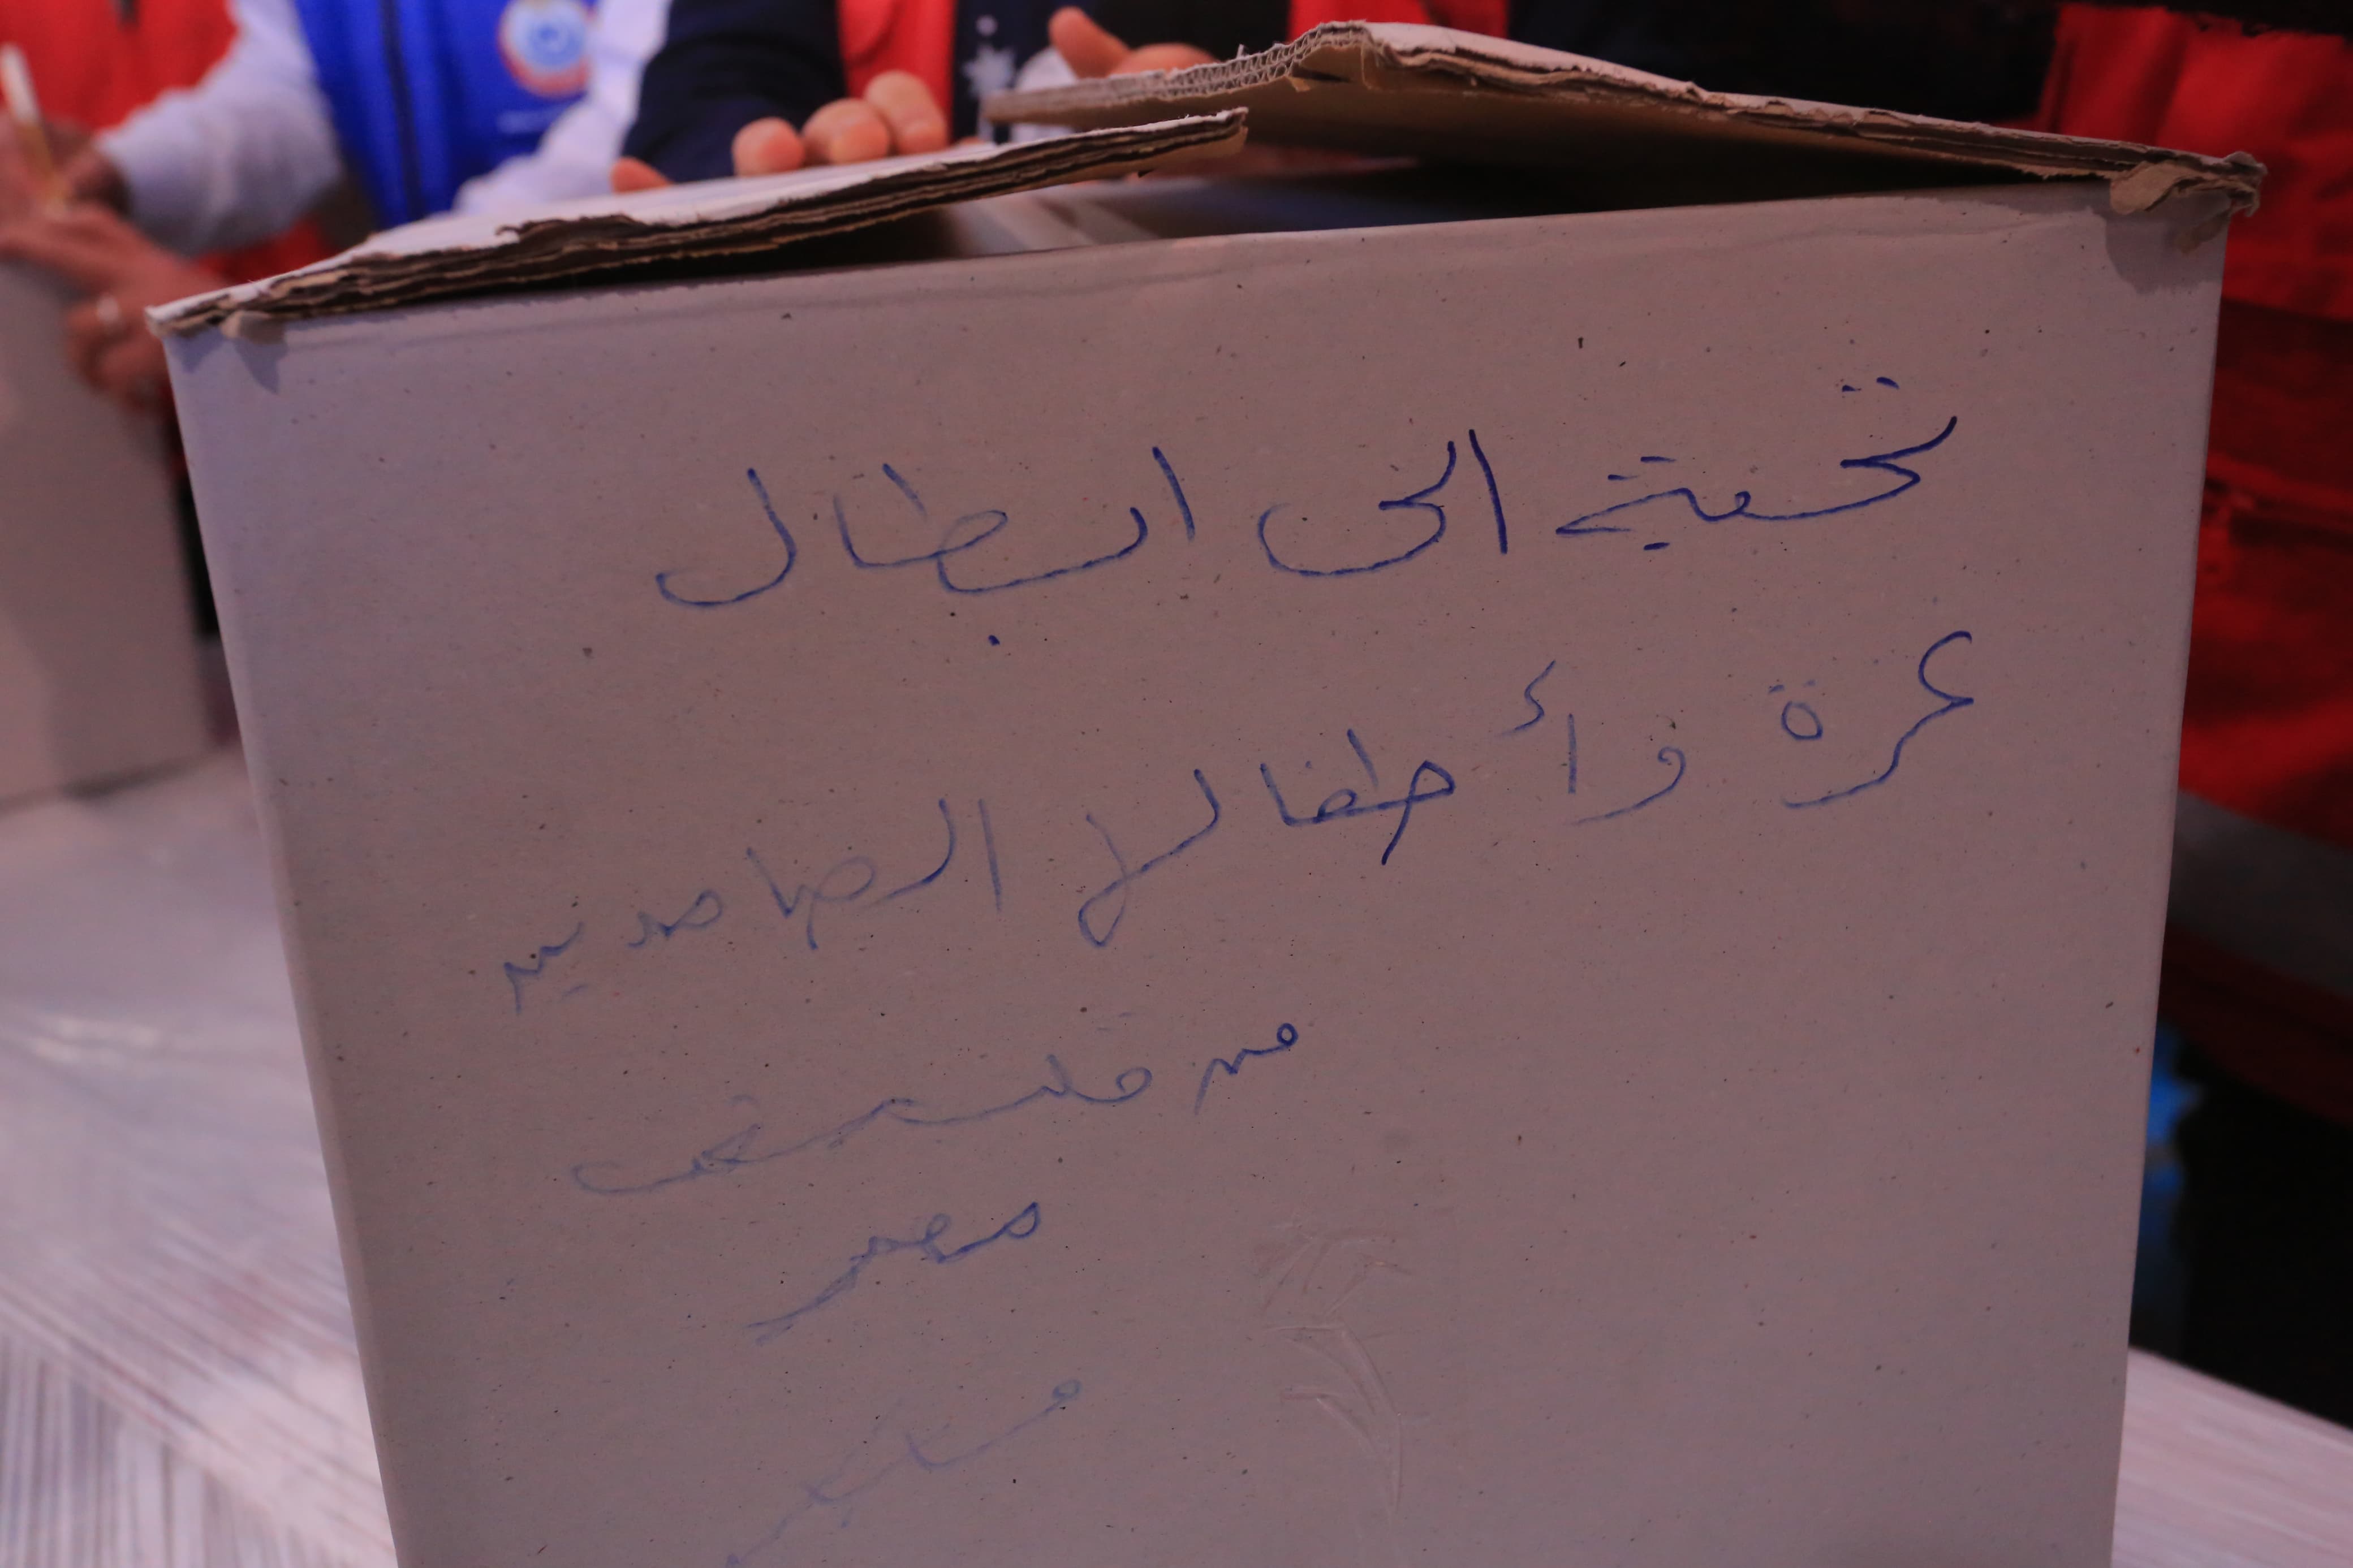 تحية الى ابطال
غزة وأطفالها الصامدين
من قلب
مصر